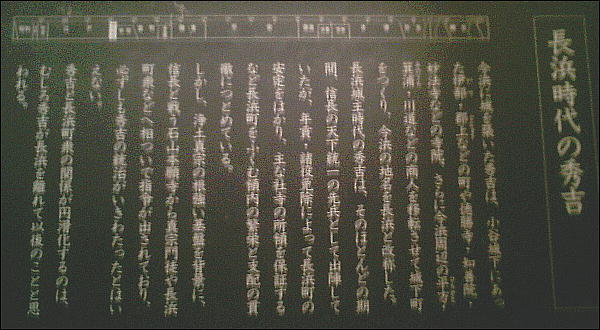 長浜時代の秀吉
今浜に城を築いた秀吉は、小谷城下にあっ
た
などの寺院、さらに今浜周辺の平方・
・川道などの商人を移転させて城下町
をつくり、今浜の地名を長浜と改称した。
長浜城主時代の秀吉は、そのほとんどの期
間、信長の天下統一の先兵として出陣して
いたが、年貢・諸役免除によって長浜町の
安定をはかり、主な社寺の所領を保護する
など長浜町を含む領内の繁栄と支配の貫
徹につとめている。
しかし、浄土真宗の根強い基盤を背景に、
信長と戦う石山本願寺から真宗門徒や長浜
町衆などへ相ついで指令が出されており、
必ずしも秀吉の統治がいきわたったとはい
えない。
秀吉と長浜町衆の関係が円滑化するのは、
むしろ秀吉が長浜を離れて以後のことと思
われる。